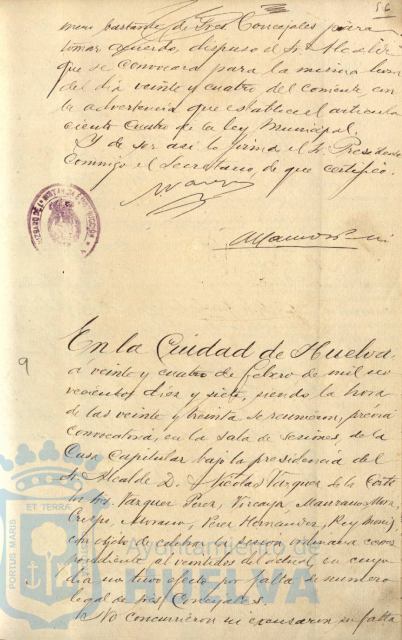 56
mero bastante de Sres. Concejales para
tomar acuerdo, dispuso el Sr. Alcalde
que se convocara para la misma hora
del dia veinte y cuatro del corriente con
la advertencia que establece el articulo
ciento cuatro de la ley Municipal.
Y de ser asi lo firma el Sr. Presidente
conmigo el Secretario, de que certifico.
En la Ciudad de Huelva
a veinte y cuatro de febrero de mil no
vecientos diez y siete, siendo la hora
de las veinte y treinta se reunieron, previa
convocatoria, en la sala de sesiones de la
Casa Capitular bajo la presidencia del
Sr. Alcalde D. Nicolas Vazquez de la Corte
los Sres. Vazquez Perez, Vizcaya, Manzano Mora,
Crespo, Moreno, Perez Hernandez, Rey
con objeto de celebrar la sesion ordinaria corres
pondiente al veintidos del actual, en cuyo
dia no tuvo efecto por falta de numero
legal de Sres Concejales.
No concurrieron ni excusaron su falta
9
PORTUS MARIS
ET TERRA
Ayuntamiento de
HUELVA